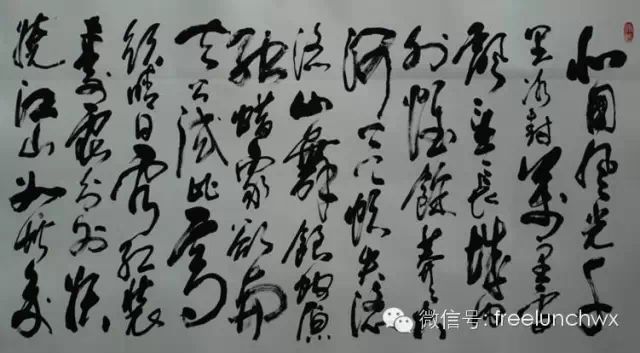 北国风光千
里冰封萬里雪
飘望長城内
外惟餘莽莽大
河上下顿失滔
滔山舞银蛇原
驰蜡象欲与
天公试比高
须晴日看红装
素裹分外妖
娆江山如此多
微信号: freelunchwx